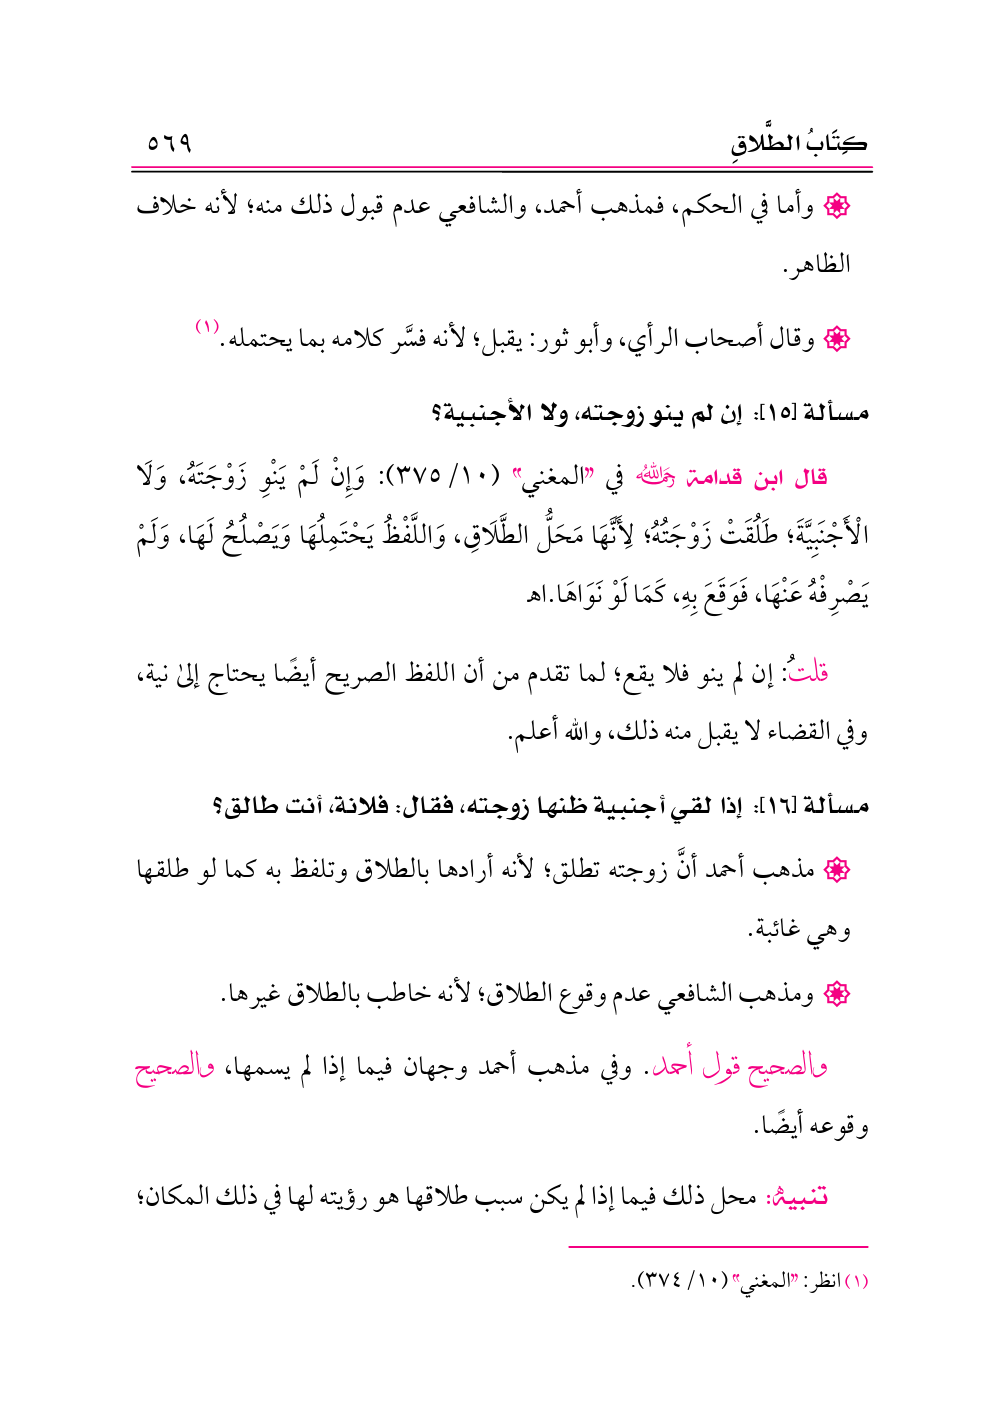 كِتَابُ الطَّلَاقِ ٥٦٩
وأما في الحكم، فمذهب أحمد، والشافعي عدم قبول ذلك منه؛ لأنه خلاف
الظاهر.
وقال أصحاب الرأي، وأبو ثور: يقبل؛ لأنه فسَّر كلامه بما يحتمله.(١)
مسألة [١٥]: إن لم ينو زوجته، ولا الأجنبية؟
قال ابن قدامة رحمه الله في "المغني" (١٠/ ٣٧٥): وَإِنْ لَمْ يَنْوِ زَوْجَتَهُ، وَلَا
الْأَجْنَبِيَّةَ؛ طَلُقَتْ زَوْجَتُهُ؛ لِأَنَّهَا مَحَلُّ الطَّلَاقِ، وَاللَّفْظُ يَحْتَمِلُهَا وَيَصْلُحُ لَهَا، وَلَمْ
يَصْرِفْهُ عَنْهَا، فَوَقَعَ بِهِ، كَمَا لَوْ نَوَاهَا.اهـ
قلتُ: إن لم ينو فلا يقع؛ لما تقدم من أن اللفظ الصريح أيضًا يحتاج إلىٰ نية،
وفي القضاء لا يقبل منه ذلك، والله أعلم.
مسألة [١٦]: إذا لقي أجنبية ظنها زوجته، فقال: فلانة، أنت طالق؟
مذهب أحمد أنَّ زوجته تطلق؛ لأنه أرادها بالطلاق وتلفظ به كما لو طلقها
وهي غائبة.
ومذهب الشافعي عدم وقوع الطلاق؛ لأنه خاطب بالطلاق غيرها.
والصحيح قول أحمد. وفي مذهب أحمد وجهان فيما إذا لم يسمها، والصحيح
وقوعه أيضًا.
تنبيهٌ: محل ذلك فيما إذا لم يكن سبب طلاقها هو رؤيته لها في ذلك المكان؛
(١) انظر: "المغني" (١٠/ ٣٧٤).